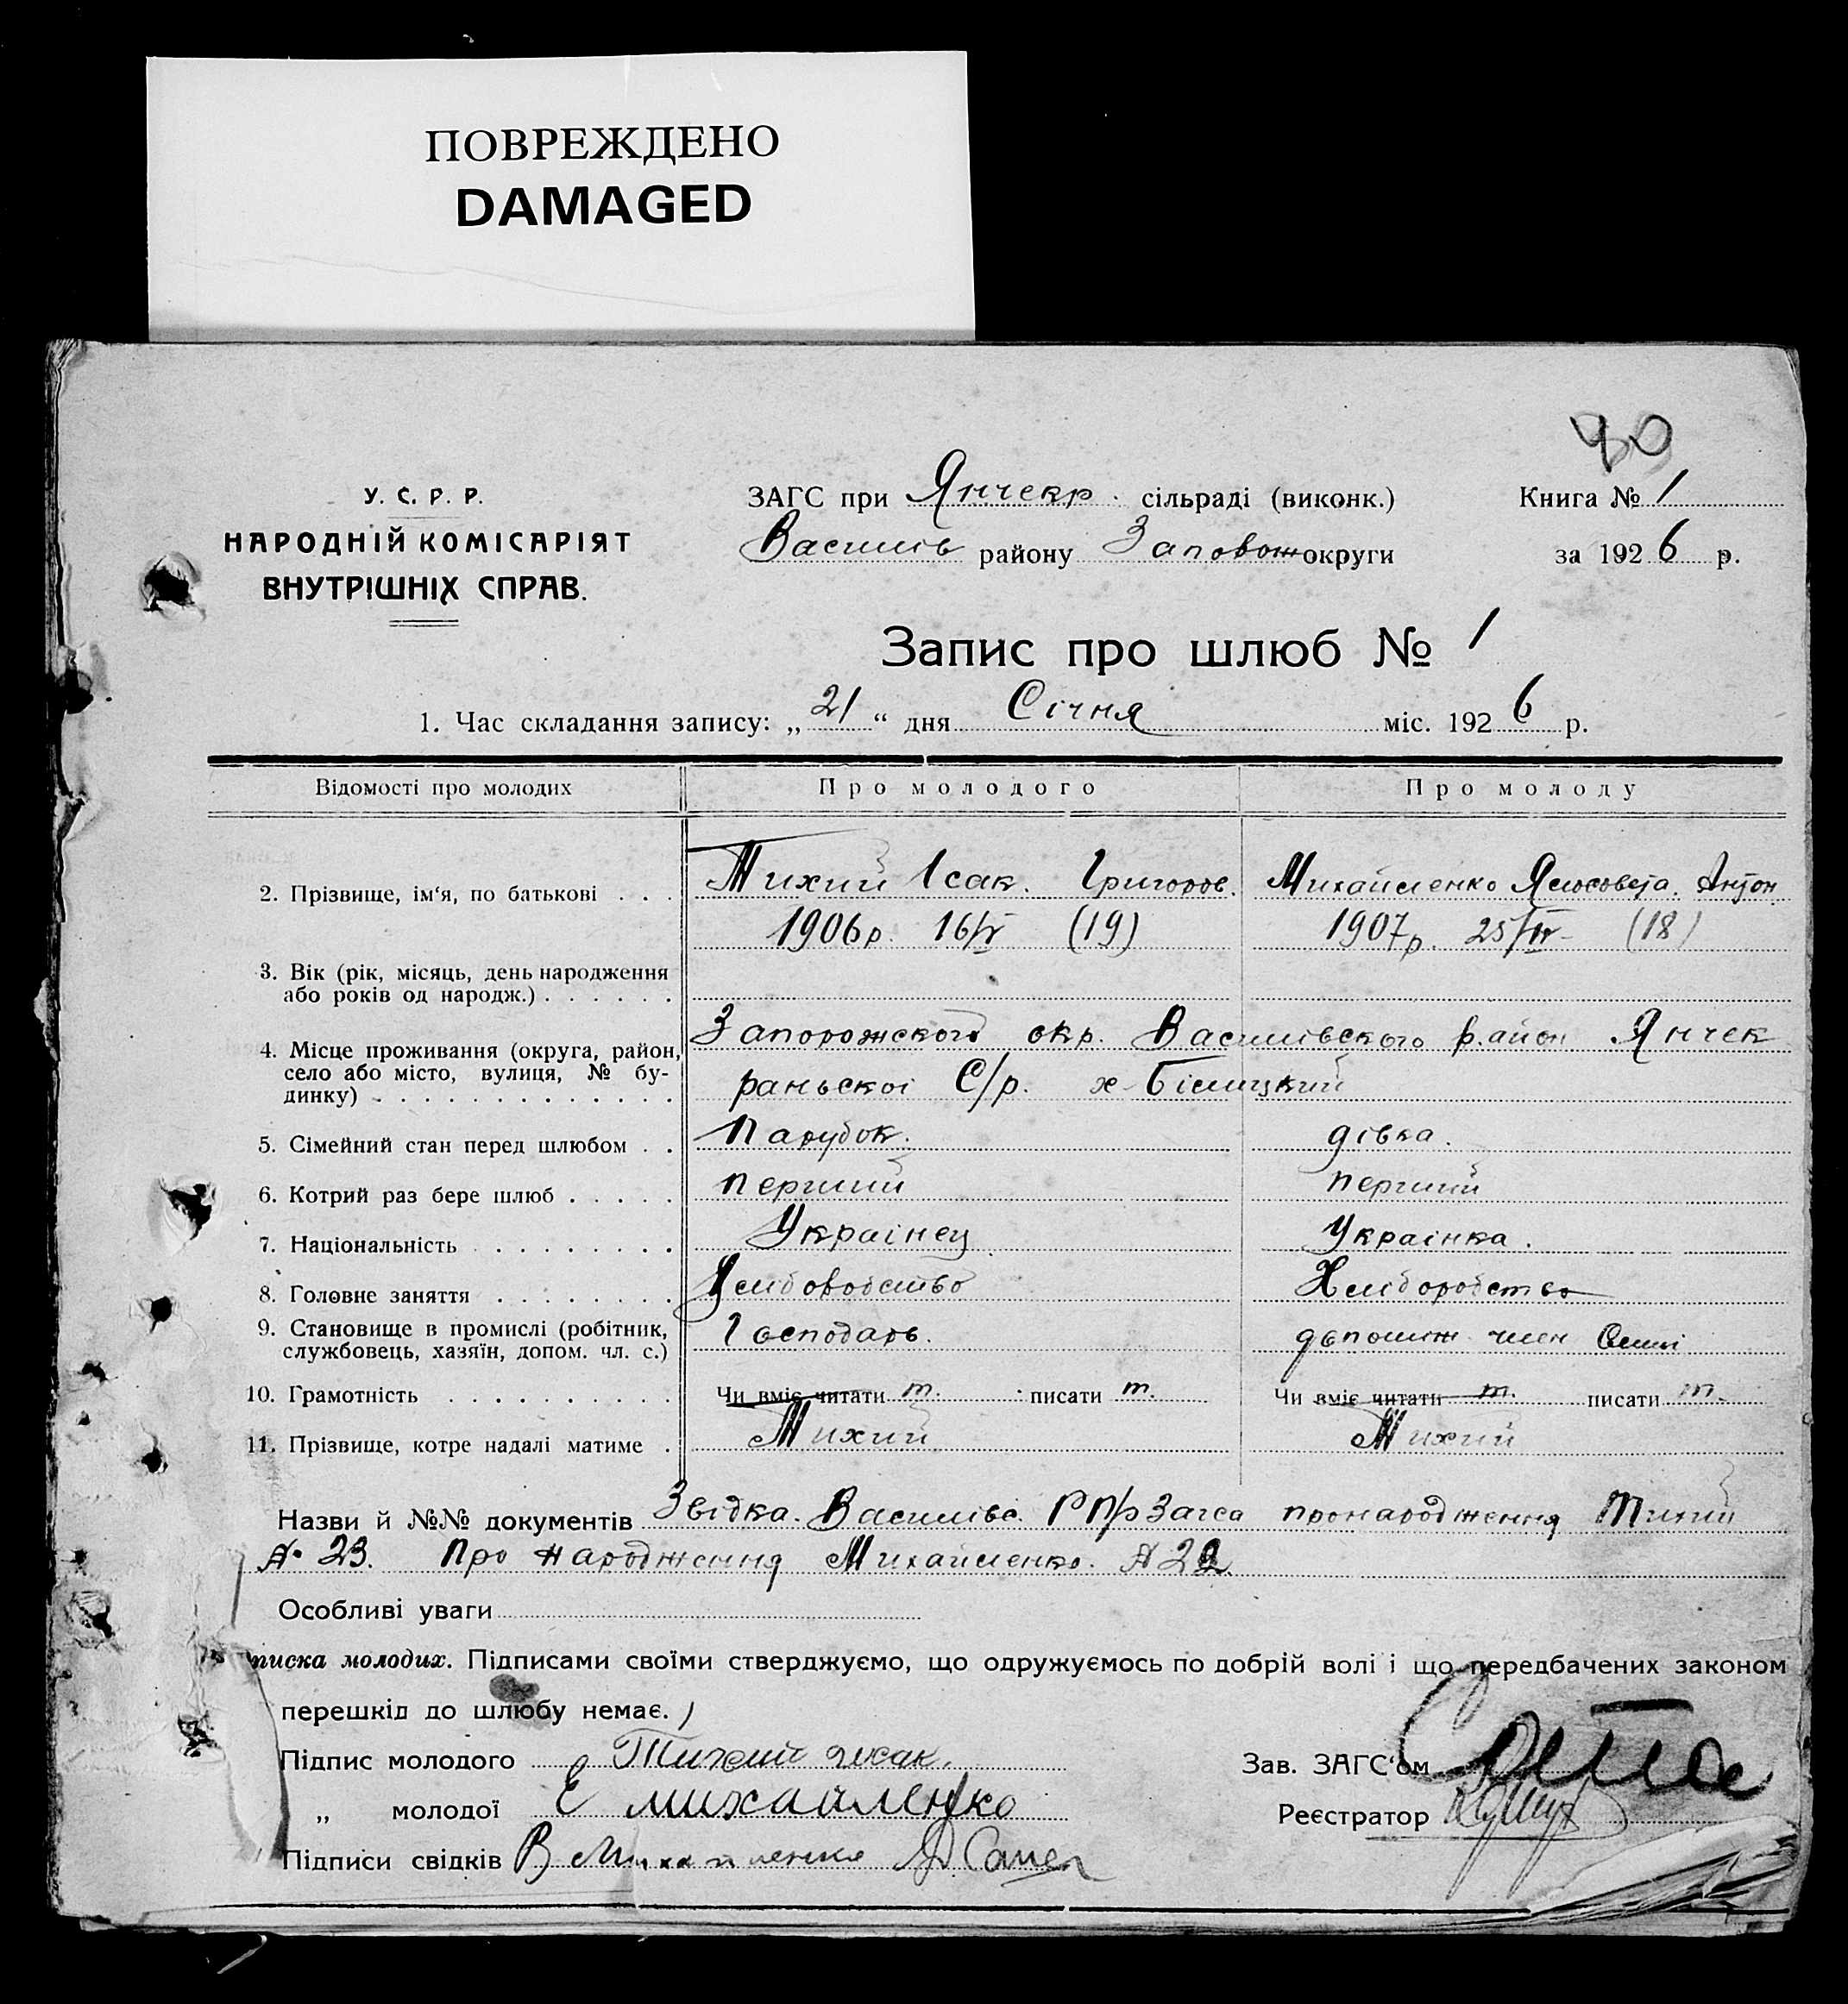 ПОВРЕЖДЕНО
DAMAGED
90
У. С. Р. Р.
НАРОДНІЙ КОМІСАРІЯТ
ВНУТРІШНІХ СПРАВ.
ЗАГС при Янчекр. сільраді (виконк.)
Василів району Запорож округи
Книга № 1
за 1926 р.
Запис про шлюб № 1
1. Час складання запису: „21“ дня Січня міс. 1926 р.
Відомості про молодих Про молодого Про молоду
2. Прізвище, ім‘я, по батькові . . . Тихий Ісак. Григоров. Михайленко Антон
1906р. 16/V (19) 1907р. (18)
3. Вік (рік, місяць, день народження
або років од народж.) . . . . . .
4. Місце проживання (округа, район, Запорожского окр. Василівского район Янчек
село або місто, вулиця, № бу- раньскоі С/р. х-Білицкий
динку) . . . . . . . . . . . . .
5. Сімейний стан перед шлюбом . . Парубок. дівка.
6. Котрий раз бере шлюб . . . . . перший перший
7. Національність . . . . . . . . Украінец Украінка.
8. Головне заняття . . . . . . . . Хлиборобство
9. Становище в промислі (робітник, Господарь. допоміж член
службовець, хазяїн, допом. чл. с.)
10. Грамотність . . . . . . . . . . Чи вміє читати т. писати т. Чи вміє читати т. писати т.
11. Прізвище, котре надалі матиме . Тихий Тихий
Назви й №№ документів Звідка. Василівс. Загса про народження Тихий
№ 23. Про народження Михайленко. № 22
Особливі уваги
писка молодих. Підписами своїми стверджуємо, що одружуємось по добрій волі і що передбачених законом
перешкід до шлюбу немає.
Підпис молодого Тихий
Зав. ЗАГС‘ом
„ молодої Е михайленко
Реєстратор
Підписи свідків В Михайленко